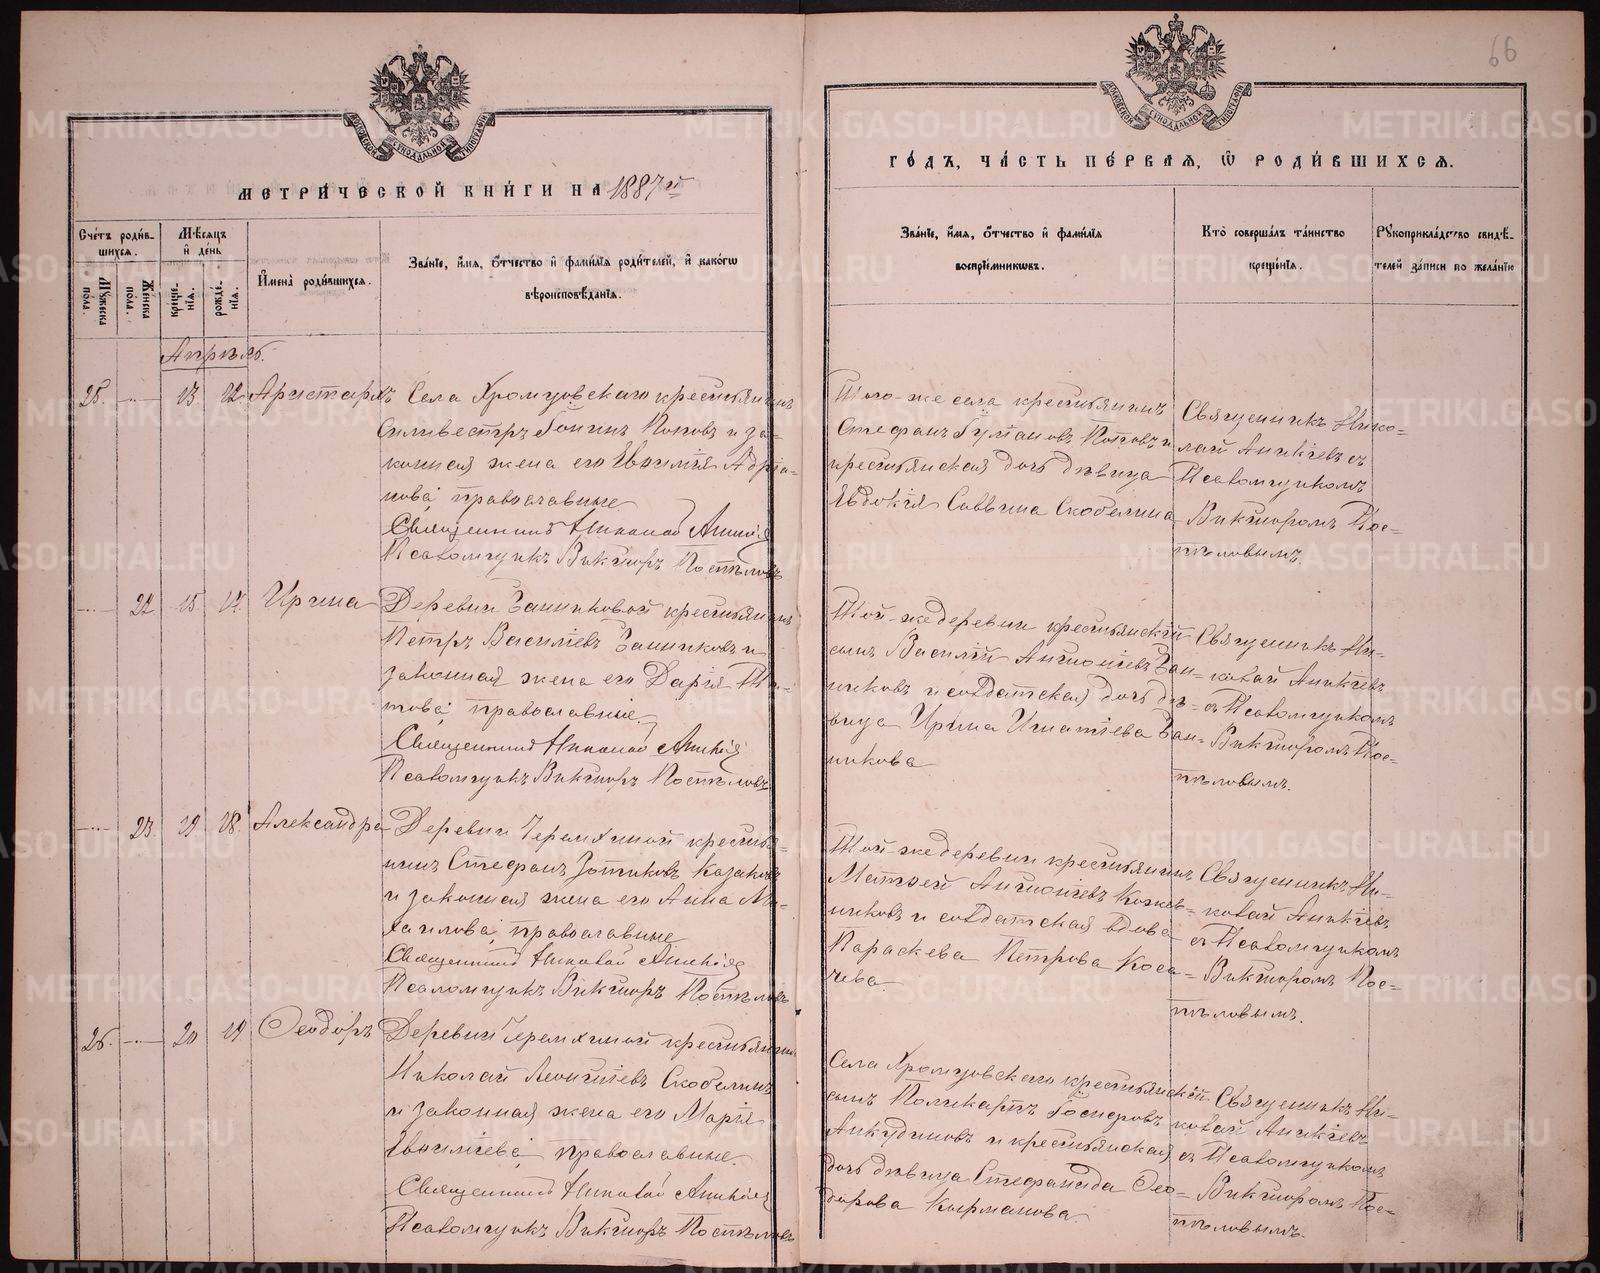 66
МЕТРИ́ЧЕСКОЙ КНИ́ГИ НА 1887й
ГО́ДЪ, ЧА́СТЬ ПЕ́РВАЯ, Ѡ РОДИ́ВШИХСЯ.
Сче́тъ роди́в-
шихся.
Мужеска пола.
Женска пола.
Мѣсяцъ и де́нь
креще́нія.
рожде́нія.
Имена̀ роди́вшихся.
Зва́ніе, и́мя, о́тчество и фами́лія роди́телей, и како́гѡ
вѣроисповѣ́данія.
Зва́ніе, и́мя, о́тчество и фами́лія
воспрі́емникѡвъ.
Кто̀ соверша́лъ та́инство
креще́нія.
Рукоприкла́дство свидѣ́-
телей за́писи по жела́нію
Апрѣль.
25. 13 12 Аристархъ
Села Хромцовскаго крестьянинъ
Силивестръ Поповъ и за-
конная жена его Евѳимія Адріа-
нова, православные
Священникъ Николай Аникіевъ
Псаломщикъ Викторъ Поспѣловъ
Того-же села крестьянинъ
Стефанъ Поповъ и
крестьянская дочь дѣвица
Явдокія Саввина Скобелина
Священникъ Нико-
лай Аникіевъ съ
Псаломщикомъ
Викторомъ Пос-
пѣловымъ
22 15 Ирина
Деревни Банниковой крестьянинъ
Петръ Василіевъ Банниковъ и
законная жена его Дарія Ти-
това, православные.
Священникъ Николай Аникіевъ
Псаломщикъ Викторъ Поспѣловъ
Той-же деревни крестьянскій
сынъ Василій Антоніевъ Бан-
никовъ и солдатская дочь дѣ-
вица Ирина Игнатіева Бан-
никова
Священникъ Ни-
колай Аникіевъ
съ Псаломщикомъ
Викторомъ Пос-
пѣловымъ.
23 19 18. Александра
Деревни Черемхиной крестья-
нинъ Стефанъ Зотиковъ Казаковъ
и законная жена его Анна Ми-
хаилова, православные
Священникъ Николай Аникіевъ
Псаломщикъ Викторъ Поспѣловъ
Той-же деревни крестьянинъ
Матѳей Антоніевъ Кожев-
никовъ и солдатская вдова
Параскева Петрова Коса-
чева
Священникъ Ни-
колай Аникіевъ
съ Псаломщикомъ
Викторомъ Пос-
пѣловымъ.
26. 20 19 Ѳеодоръ
Деревни Черемхиной крестьянинъ
Николай Леонтіевъ Скобелинъ
и законная жена его Марія
Евѳиміева, православные.
Священникъ Николай Аникіевъ
Псаломщикъ Викторъ Поспѣловъ
Села Хромцовскаго крестьянскій
сынъ Поликарпъ
Анкудиновъ и крестьянская
дочь дѣвица Стефанида Ѳео-
дорова Кырманова.
Священникъ Ни-
колай Аникіевъ
съ Псаломщикомъ
Викторомъ Пос-
пѣловымъ.
METRIKI.GASO-URAL.RU